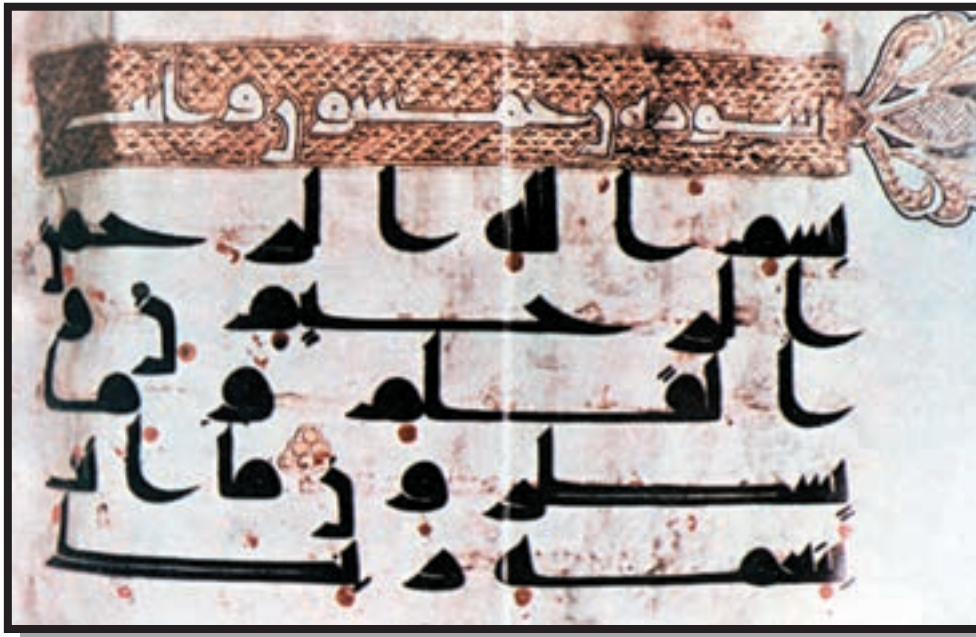 سورة ن خمسون و
بسم الله الرحمن
الرحيم ن و
القلم و ما
يسطرون ما انت
بنعمة ربك